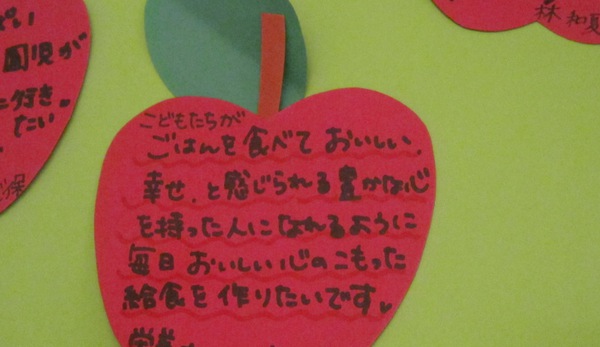 こどもたちが
ごはんを食べて おいしい、
幸せ、と感じられる豊かな心
を持った人になれるように
毎日 おいしい心のこもった
給食を作りたいです。
栄養
ぱい
園児が
好き
たい。
林 和夏